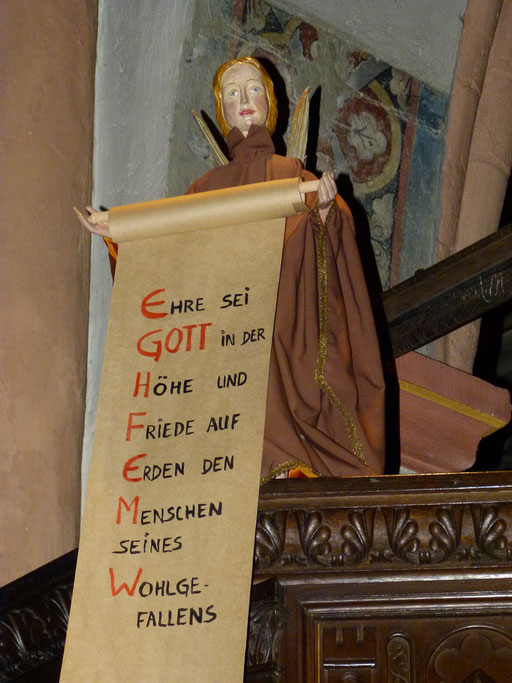 EHRE SEI
GOTT IN DER
HÖHE UND
FRIEDE AUF
ERDEN DEN
MENSCHEN
SEINES
WOHLGE-
FALLENS